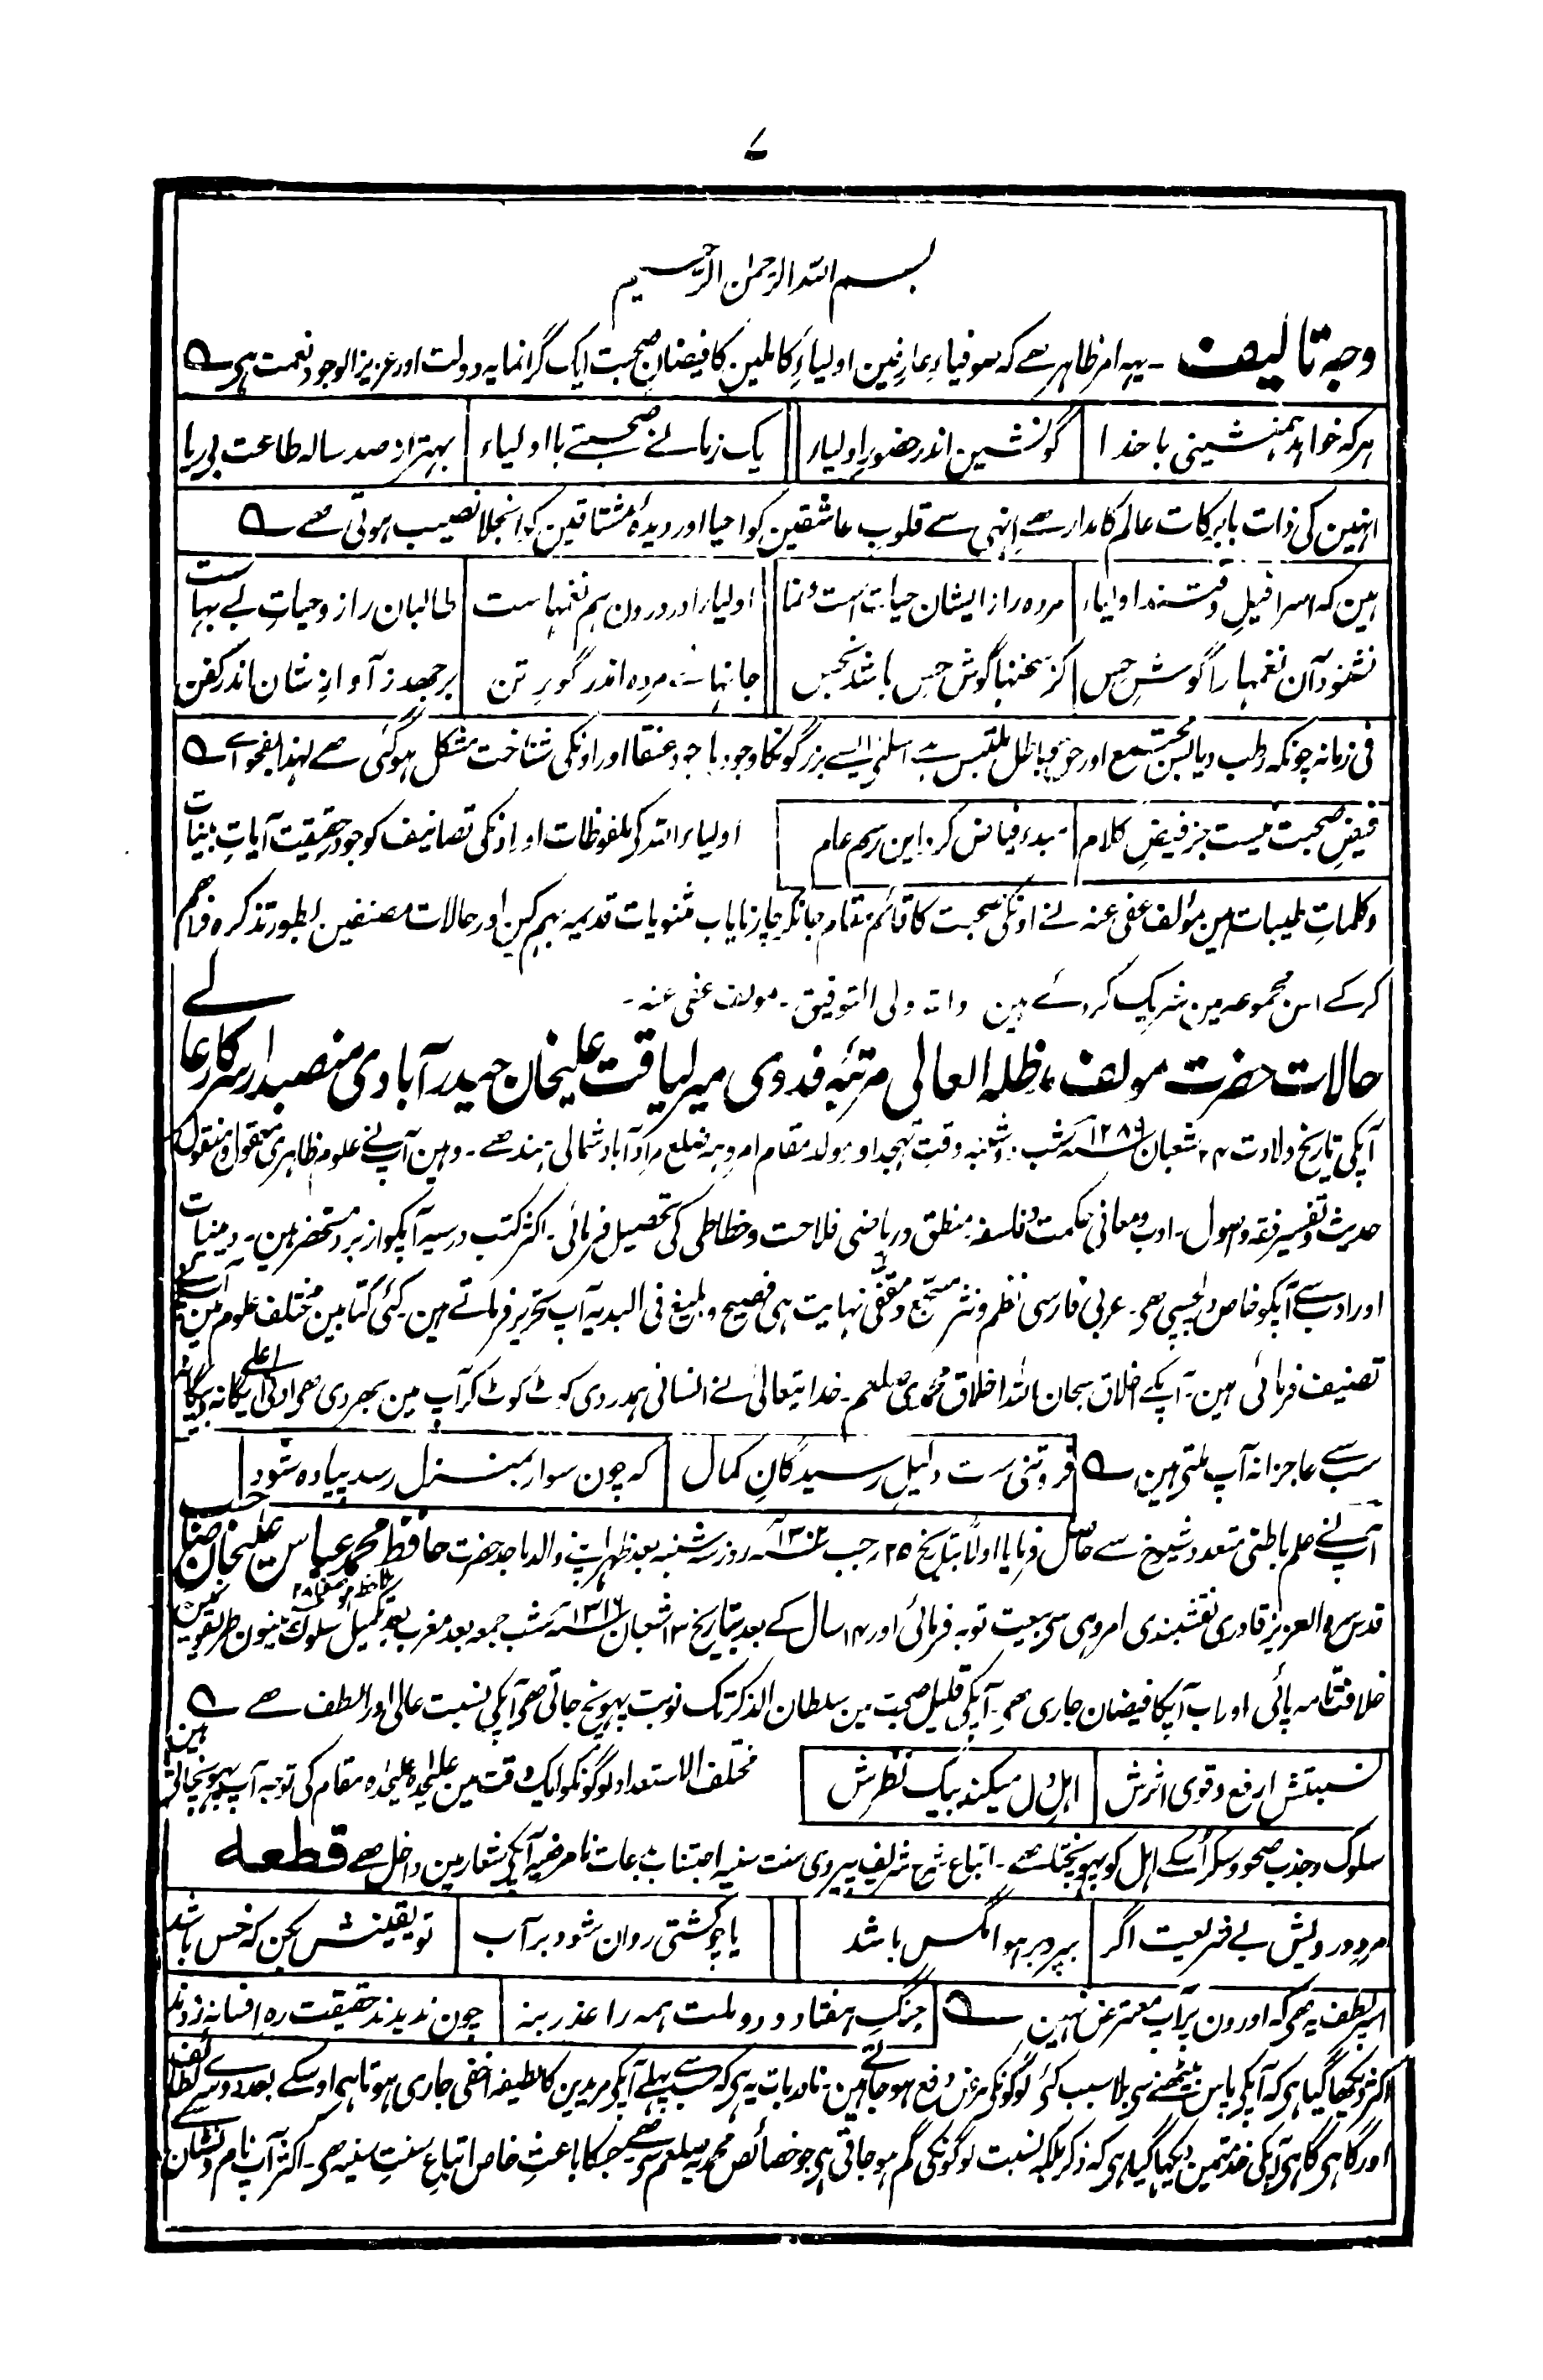 ۷
بسم اللہ الرحمٰن الرحیم
وجہ تالیف ۔ یہہ امر ظاہر ہے کہ صوفیاءِ عارفین اولیاءِ کاملین کا فیضانِ صحبت ایک گرانمایہ دولت اور عزیز الوجود نعمت ہی
ہر کہ خواہد ہمنشینی با خدا گو نشین اندر حضورِ اولیاء یک زمانے صحبتے با اولیاء بہتر از صد سالہ طاعت بی ریا
انہین کی ذات بابرکات عالم کا مدار ہے اِنہی سے قلوبِ عاشقین کو احیا اور دیدۂ مشتاقین کو انجلا نصیب ہوتی ہے
ہین کہ اسرافیلِ وقتند اولیاء مردہ را از ایشان حیات است و نما اولیا را در درون ہم نغمہاست طالبان را زو حیاتِ بے بہاست
نشنود آن نغمہا را گوشِ حس کز سخنہا گوش حس باشد نجس جانہاے مردہ اندر گورِ تن بر جہد ز آوازِ شان اندر کفن
فی زمانہ چونکہ رطب و یابس مجتمع اور حق و باطل ملتبس ہے اسلئے ایسے بزرگونکا وجود باجود عنقا اور اونکی شناخت مشکل ہوگئی ہے لہذا بفحواے
فیضِ صحبت نیست جز فیضِ کلام مبدء فیاض کرد این رسم عام اولیاء اللہ کی ملفوظات اور اونکی تصانیف کو جو درحقیقت آیاتِ بینات
و کلماتِ طیبات ہین مؤلف عفی عنہ نے اونکی صحبت کا قائم مقام جانکر چار نایاب مثنویات قدیمہ بہم کین اور حالات مصنفین بطور تذکرہ فراہم
کرکے اس مجموعہ مین شریک کردئے ہین واللہ ولی التوفیق ۔ مولف عفی عنہ ۔
حالات حضرت مولف مدظلہ العالی مرتبہ فدوی میر لیاقت علیخان حیدرآبادی منصبدار سرکار عالے
آپکی تاریخ ولادت ۲۴ شعبان ۱۲۸۶ھ شب دوشنبہ وقتِ تہجد اور مولد مقام امروہہ ضلع مرادآباد شمالی ہند ہے ۔ وہین آپ نے علوم ظاہری معقول و منقول
حدیث و تفسیر فقہ و اصول ۔ ادب و معانی حکمت و فلسفہ ۔ منطق و ریاضی فلاحت و خطاطی کی تحصیل فرمائی ۔ اکثر کتب درسیہ آپکو ازبر و مستحضر ہین ۔ دینیات
اور ادب سے آپکو خاص دلچسپی ہے ۔ عربی فارسی نظم و نثر مسجع و مقفیٰ نہایت ہی فصیح و بلیغ فی البدیہ آپ تحریر فرماتے ہین ۔ کئی کتابین مختلف علوم مین آپنے
تصنیف فرمائی ہین ۔ آپکے اخلاق سبحان اللہ اخلاقِ محمدی صلعم ۔ خدا یتعالیٰ نے انسانی ہمدردی کوٹ کوٹ کر آپ مین بھردی ہے ادنیٰ اعلی یگانہ بیگانہ
سب سے عاجزانہ آپ ملتی ہین فروتنی ست دلیلِ رسیدگانِ کمال کہ چون سوار بمنزل رسد پیادہ شود
آپ نے علم باطنی متعدد شیوخ سے حاصل فرمایا اولاً بتاریخ ۲۵ رجب ۱۳۰۲ھ روز سہ شنبہ بعد ظہر اپنے والد ماجد حضرت حافظ محمد عباس علیخان صاحب
قدس سرہ العزیز قادری نقشبندی امروہی سی بیعت توبہ فرمائی اور ۱۴ سال کے بعد بتاریخ ۱۳ شعبان ۱۳۱۶ھ شب جمعہ بعد مغرب بعد تکمیل سلوک تینون طریقونمین
خلافتنامہ پائی اور اب آپکا فیضان جاری ہی ۔ آپکی قلیل صحبت مین سلطان الذکر تک نوبت پہونچ جاتی ہی آپکی نسبت عالی اور الطف ہے
نسبتش ارفع و قوی اثرش اہل دل میکند بیک نظرش مختلف الاستعداد لوگونکو ایک وقت مین علیٰحدہ علیٰحدہ مقام کی توجہ آپ پہونچاتی ہین
سلوک و جذب صحو و سکر اُسکے اہل کو پہونچتا ہے ۔ اتباع شرع شریف پیروی سنت سنیہ اجتناب بدعات نامرضیہ آپکی شعار مین داخل ہے قطعہ
مردِ درویش بے شریعت اگر بپرد بر ہوا مگس باشد یا چو کشتی روان شود بر آب تو یقینش بکن کہ خس باشد
اسپر لطف یہ ہی کہ اورون پر آپ معترض نہین جنگِ ہفتاد و دو ملت ہمہ را عذر بنہ چون ندیدند حقیقت رہِ افسانہ زدند
اکثر دیکھا گیا ہی کہ آپکی پاس بیٹھنے سی بلا سبب کئی لوگونکی مرض دفع ہو جاتے ہین ۔ نادر بات یہ ہی کہ سب سے پہلے آپکی مریدین کا لطیفہ اخفی جاری ہوتا ہی اوسکے بعد دوسرے لطائف
اور گاہی گاہی آپکی خدمتمین دیکہا گیا ہی کہ ذکر بلکہ نسبت لوگونکی گم ہو جاتی ہی جو خصائص محمدیہ صلعم سے ہے جسکا باعثِ خاص اتباعِ سنتِ سنیہ ہی ۔ اکثر آپ نام و نشان سے